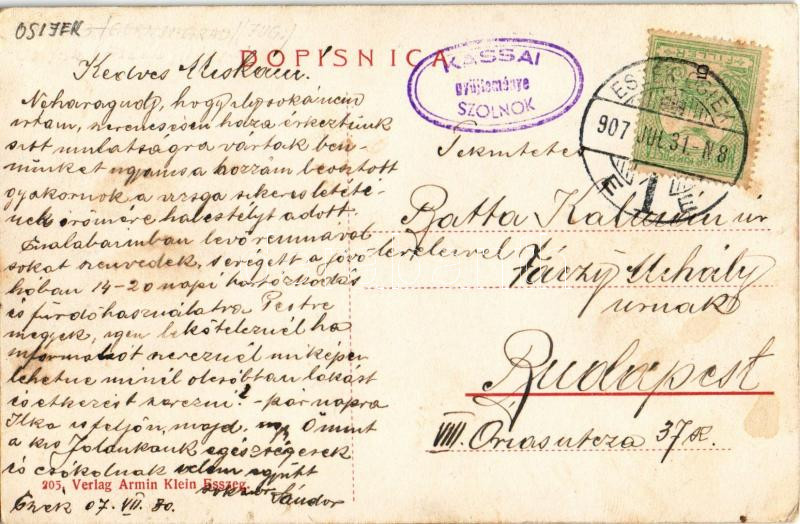 OSIJEK
DOPISNICA
KASSAI
gyüjteménye
SZOLNOK
ESZÉK
907 JUL. 31 - N 8
E 1
Kedves Miskám!
Neharagudj, hogy oly sokáig nem
irtam, szerencsésen haza érkeztünk
s itt mulatságra vártak ben-
nünket ugyanis a hozzám beosztott
gyakornok, a vizsga sikeres letéte-
nek örömére halestélyt adott.
lábaimban levő reumával
sokat szenvedek, s e végett a jövő
hóban 14-20 napi tartózkodás
és fürdőhasználatra Pestre
megyek, igen leköteleznél ha
informatiót szereznél miképen
lehetne minél olcsóbban lakást
és étkezést szerezni? - pár napra
Ilka is feljön majd. Ő mint
a kis Jolánkánk egészségesek
és csókolnak velem együtt
sokszor Sándor
Eszék 07. VII. 30.
205. Verlag Armin Klein Esszeg.
Tekintetes
Batta Kálmán úr
levelével Váczy Mihály
úrnak
Budapest
VIII. Óriás utcza 37